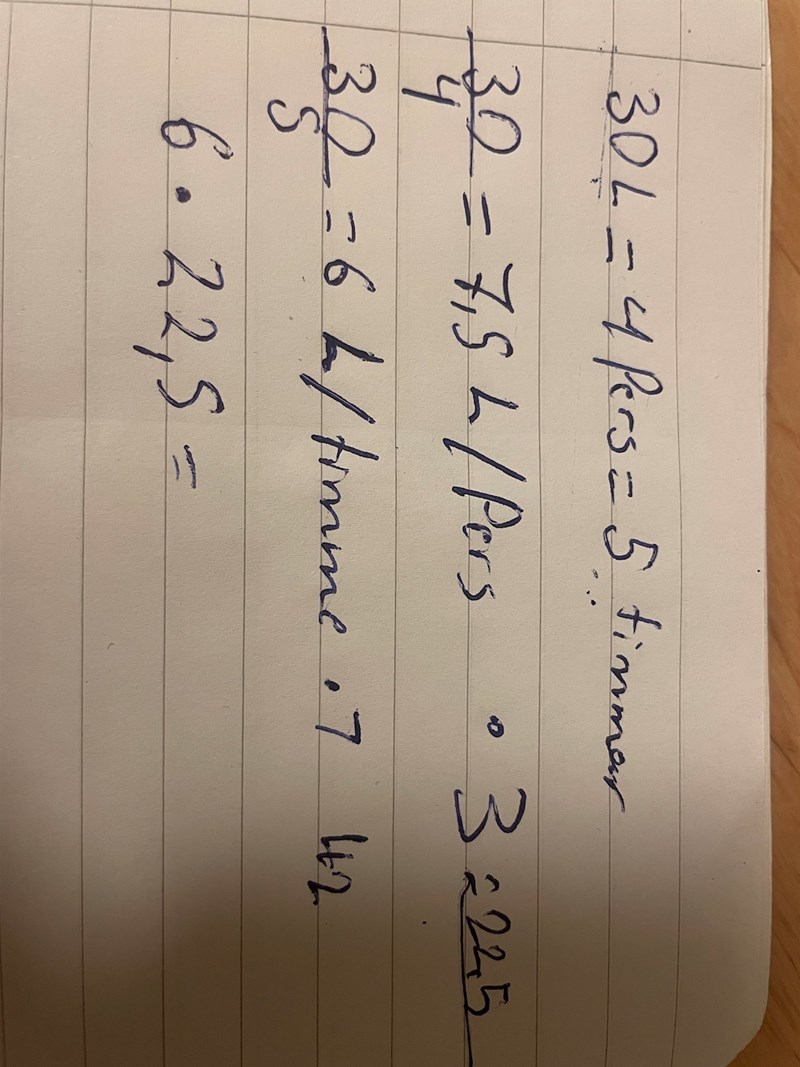 30L = 4 Pers = 5 timmar
30/4 = 7,5 L/Pers • 3 = 22,5
30/5 = 6 L/timme • 7 42
6 • 22,5 =